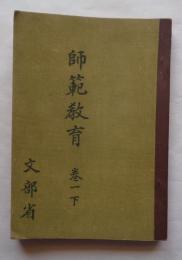 師範教育
巻一下
文部省